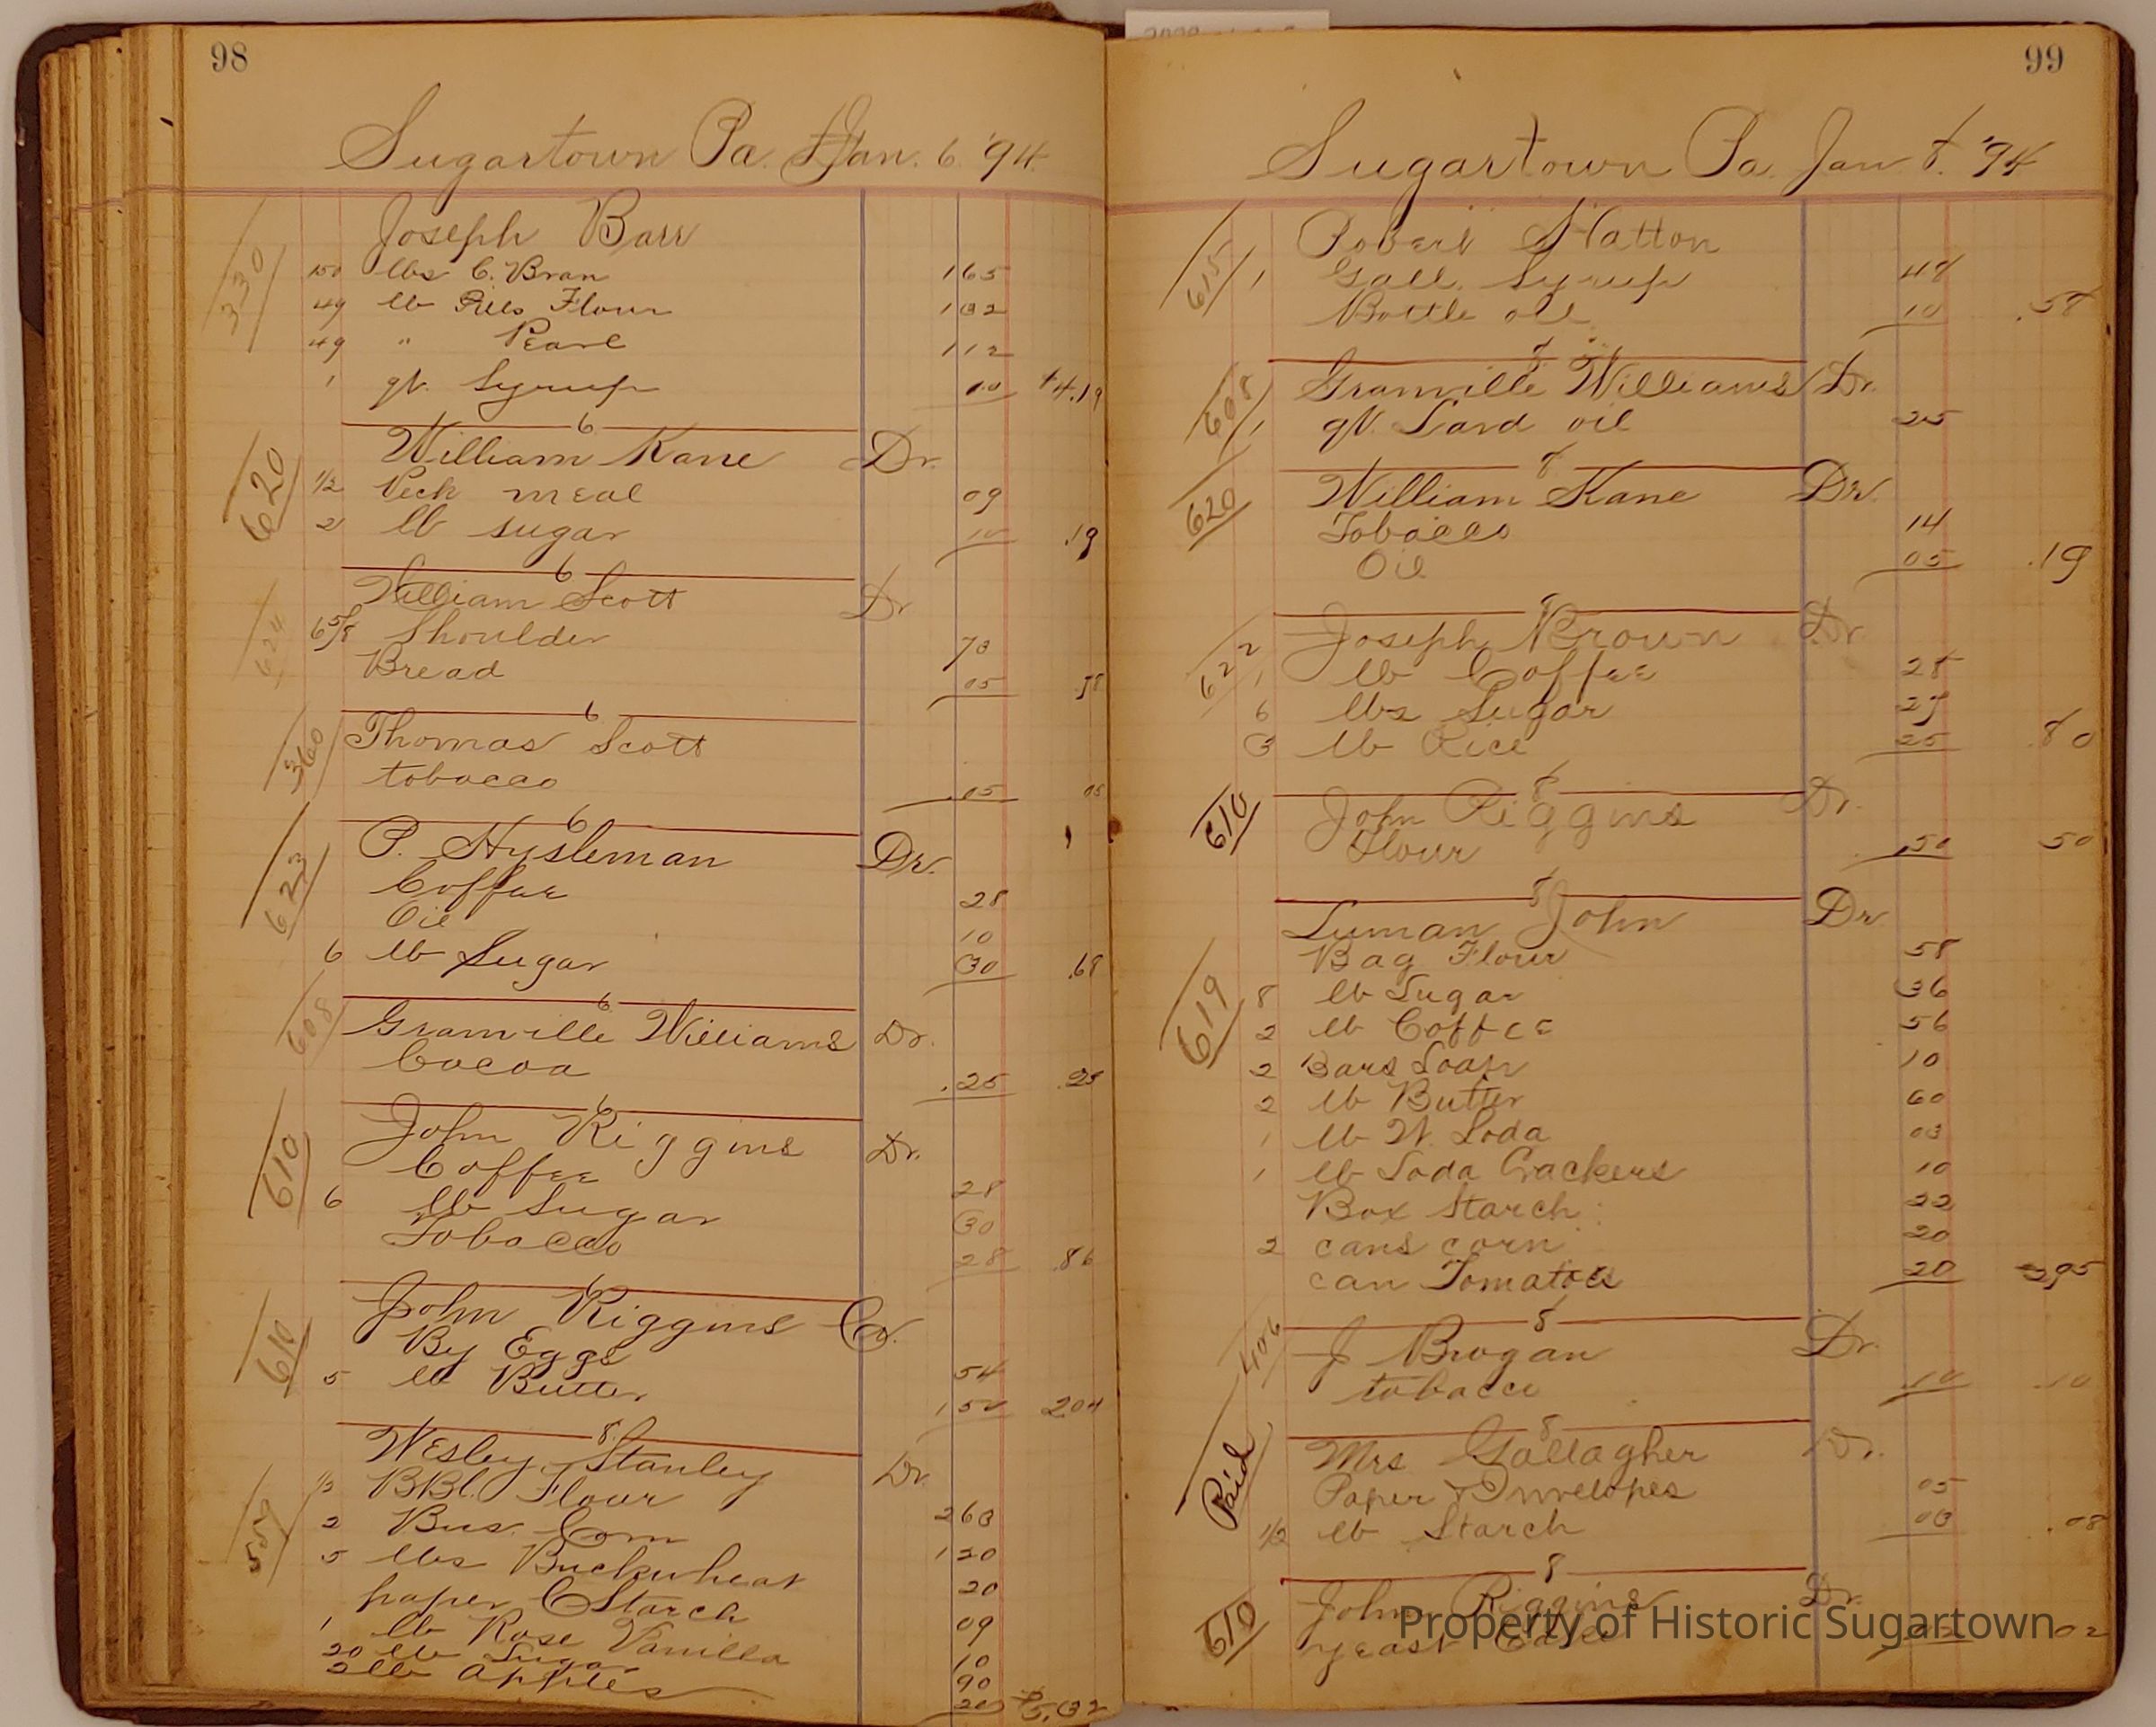 98
Sugartown Pa. Jan. 6. '94.
330
Joseph Barr
150 lbs C. Bran 165
49 lb Flour 132
49 " Pearl 112
1 qt. Syrup 10 $4.19
6
620
William Kane Dr.
1/2 Peck meal 09
2 lb sugar 10 .19
6
624
William Scott Dr
6 5/8 Shoulder 73
Bread 05 .78
6
360
Thomas Scott
tobacco .05 05
6
623
P. Hysleman Dr.
Coffee 28
Oil 10
6 lb Sugar 30 .68
6
608
Granville Williams Dr.
Cocoa .25 .25
6
610
John Riggins Dr.
Coffee 28
6 lb Sugar 30
Tobacco 28 .86
6
610
John Riggins Cr.
By Eggs 54
5 lb Butter 150 204
8
557
Wesley Stanley Dr.
1/2 BBl. Flour 263
2 Bus. Corn 120
5 lbs Buckwheat 20
paper C Starch 09
1 lb Rose Vanilla 10
20 lb Sugar 90
2 lb Apples 20 $5.32
99
Sugartown Pa. Jan 8. '94
615
Robert Hatton
1 Gall. Syrup 48
Bottle oil 10 .58
8
608
Granville Williams Dr.
1 qt. Lard oil 25
8
620
William Kane Dr.
Tobacco 14
Oil 05 .19
8
622
Joseph Brown Dr
1 lb Coffee 28
6 lbs Sugar 27
3 lb Rice 25 .80
8
610
John Riggins Dr.
Flour .50 50
8
619
Luman John Dr
Bag Flour 58
8 lb Sugar 36
2 lb Coffee 56
2 Bars Soap 10
2 lb Butter 60
1 lb W. Soda 03
1 lb Soda Crackers 10
Box Starch 22
2 cans corn 20
can Tomatoes 20 295
8
406
J Brogan Dr.
tobacco .10 .10
8
Paid
Mrs Gallagher Dr.
Paper & Envelopes 05
1/2 lb Starch 03 .08
8
610
John Riggins Dr.
yeast Cake 02 02
Property of Historic Sugartown